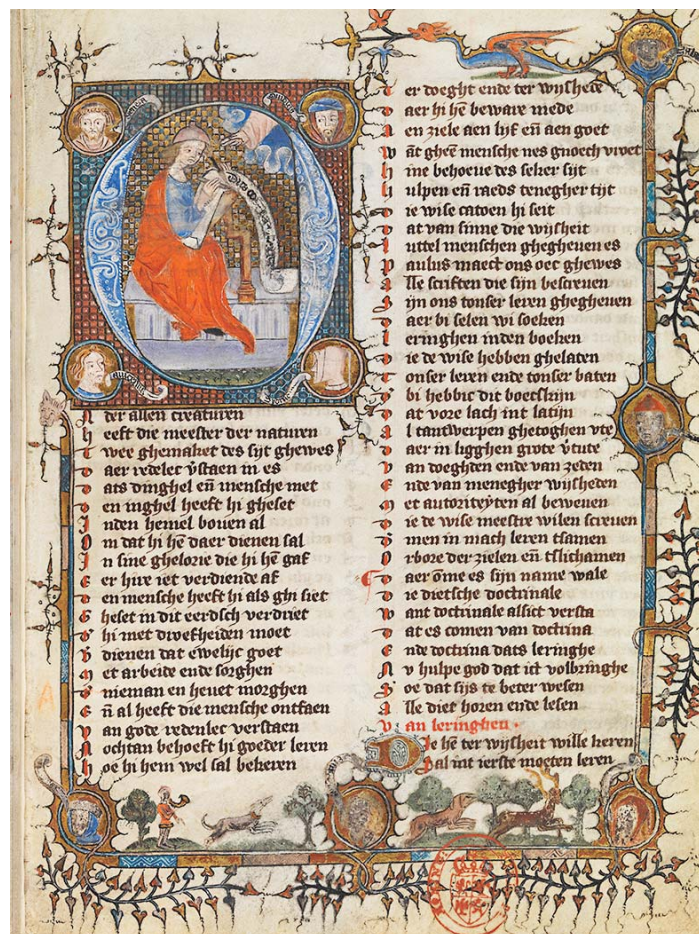 O
nder allen creaturen
h eeft die meester der naturen
t wee ghemaket des sijt ghewes
d aer redelec v̄staen in es
d ats dinghel en̄ mensche met
d en inghel heeft hi gheset
I nden hemel bouen al
O m dat hi hē daer dienen sal
I n sine ghelorie die hi hē gaf
E er hire iet verdiende af
d en mensche heeft hi als ghi siet
G heset in dit eerdsch verdriet
hi met droefheiden moet
V dienen dat ewelijc goet
M et arbeide ende sorghen
nieman en heuet morghen
E n̄ al heeft die mensche ontfaen
V an gode redenlec verstaen
N ochtan behoeft hi goeder leren
h oe hi hem wel sal bekeren
t er doeght ende ter wijsheide
d aer hi hē beware mede
A en ziele aen lijf en̄ aen goet
w āt gheē mensche nes gnoech vroet
h ine behoeue des seker sijt
h ulpen en̄ raeds tenegher tijt
d ie wise catoen hi seit
d at van sinne die wijsheit
l uttel menschen ghegheuen es
p aulus maect ons oec ghewes
A lle scriften die sijn bescreuen
S ijn ons tonser leren ghegheuen
d aer bi selen wi soeken
l eringhen inden boeken
d ie de wise hebben ghelaten
t onser leren ende tonser baten
bi hebbic dit boecskijn
d at vore lach int latijn
A l tantwerpen ghetoghen vte
d aer in ligghen grote v̄tute
V an doeghden ende van zeden
E nde van menegher wijsheden
M et autoriteyten al beweuen
d ie de wise meestre wilen screuen
men in mach leren tsamen
O rbore der zielen en̄ tslichamen
d aer ōme es sijn name wale
d ie dietsche doctrinale
w ant doctrinale alsict versta
d at es comen van doctrina
E nde doctrina dats leringhe
N v hulpe god dat ict volbringhe
S oe dat sijs te beter wesen
A lle diet horen ende lesen
V an leringhen
D ie hē ter wijsheit wille keren
S al int ierste moeten leren